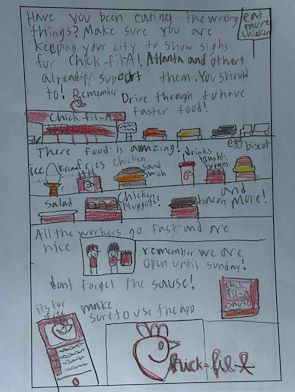 Have you been eating the wrong
eat
more
chicken
things? Make sure you are
keeping your city to show sighs
for Chick-fil-A!, Atlanta and others
already suport them. You should
to! Remember Drive through to have
faster food!
Chick-fil-A
There food is amazing!
ice cream
fries
Chicken
sand
wich
drinks
hash
browns
egg biscut
salad
Chicken
Nuggets!
and
bacon more!
All the workers go fast and are
nice
remember we are
open until sunday!
dont forget the sause!
chik
fil-A
sause
its for
free
make
sure to use the app
Chick-fil-A